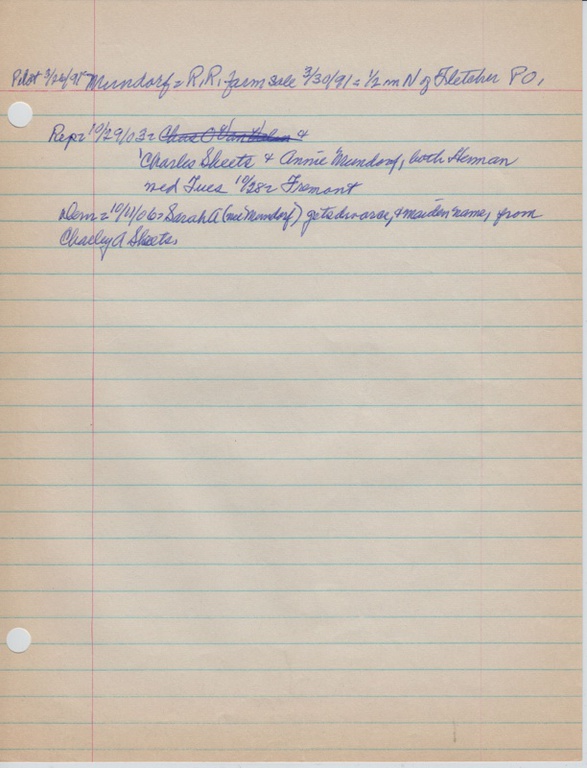 Pilot 3/26/91= Mundorf= R,R, farm sale 3/30/91= 1/2 m N of Fletcher P O,
Rep= 10/29/03= &
"Charles Sheets & Annie Mundorf, both Herman
med Tues 10/28= Fremont
Dem= 10/11/06= Sarah A (nee Mundorf) gets divorce, & maiden name, from
Charley A Sheets,